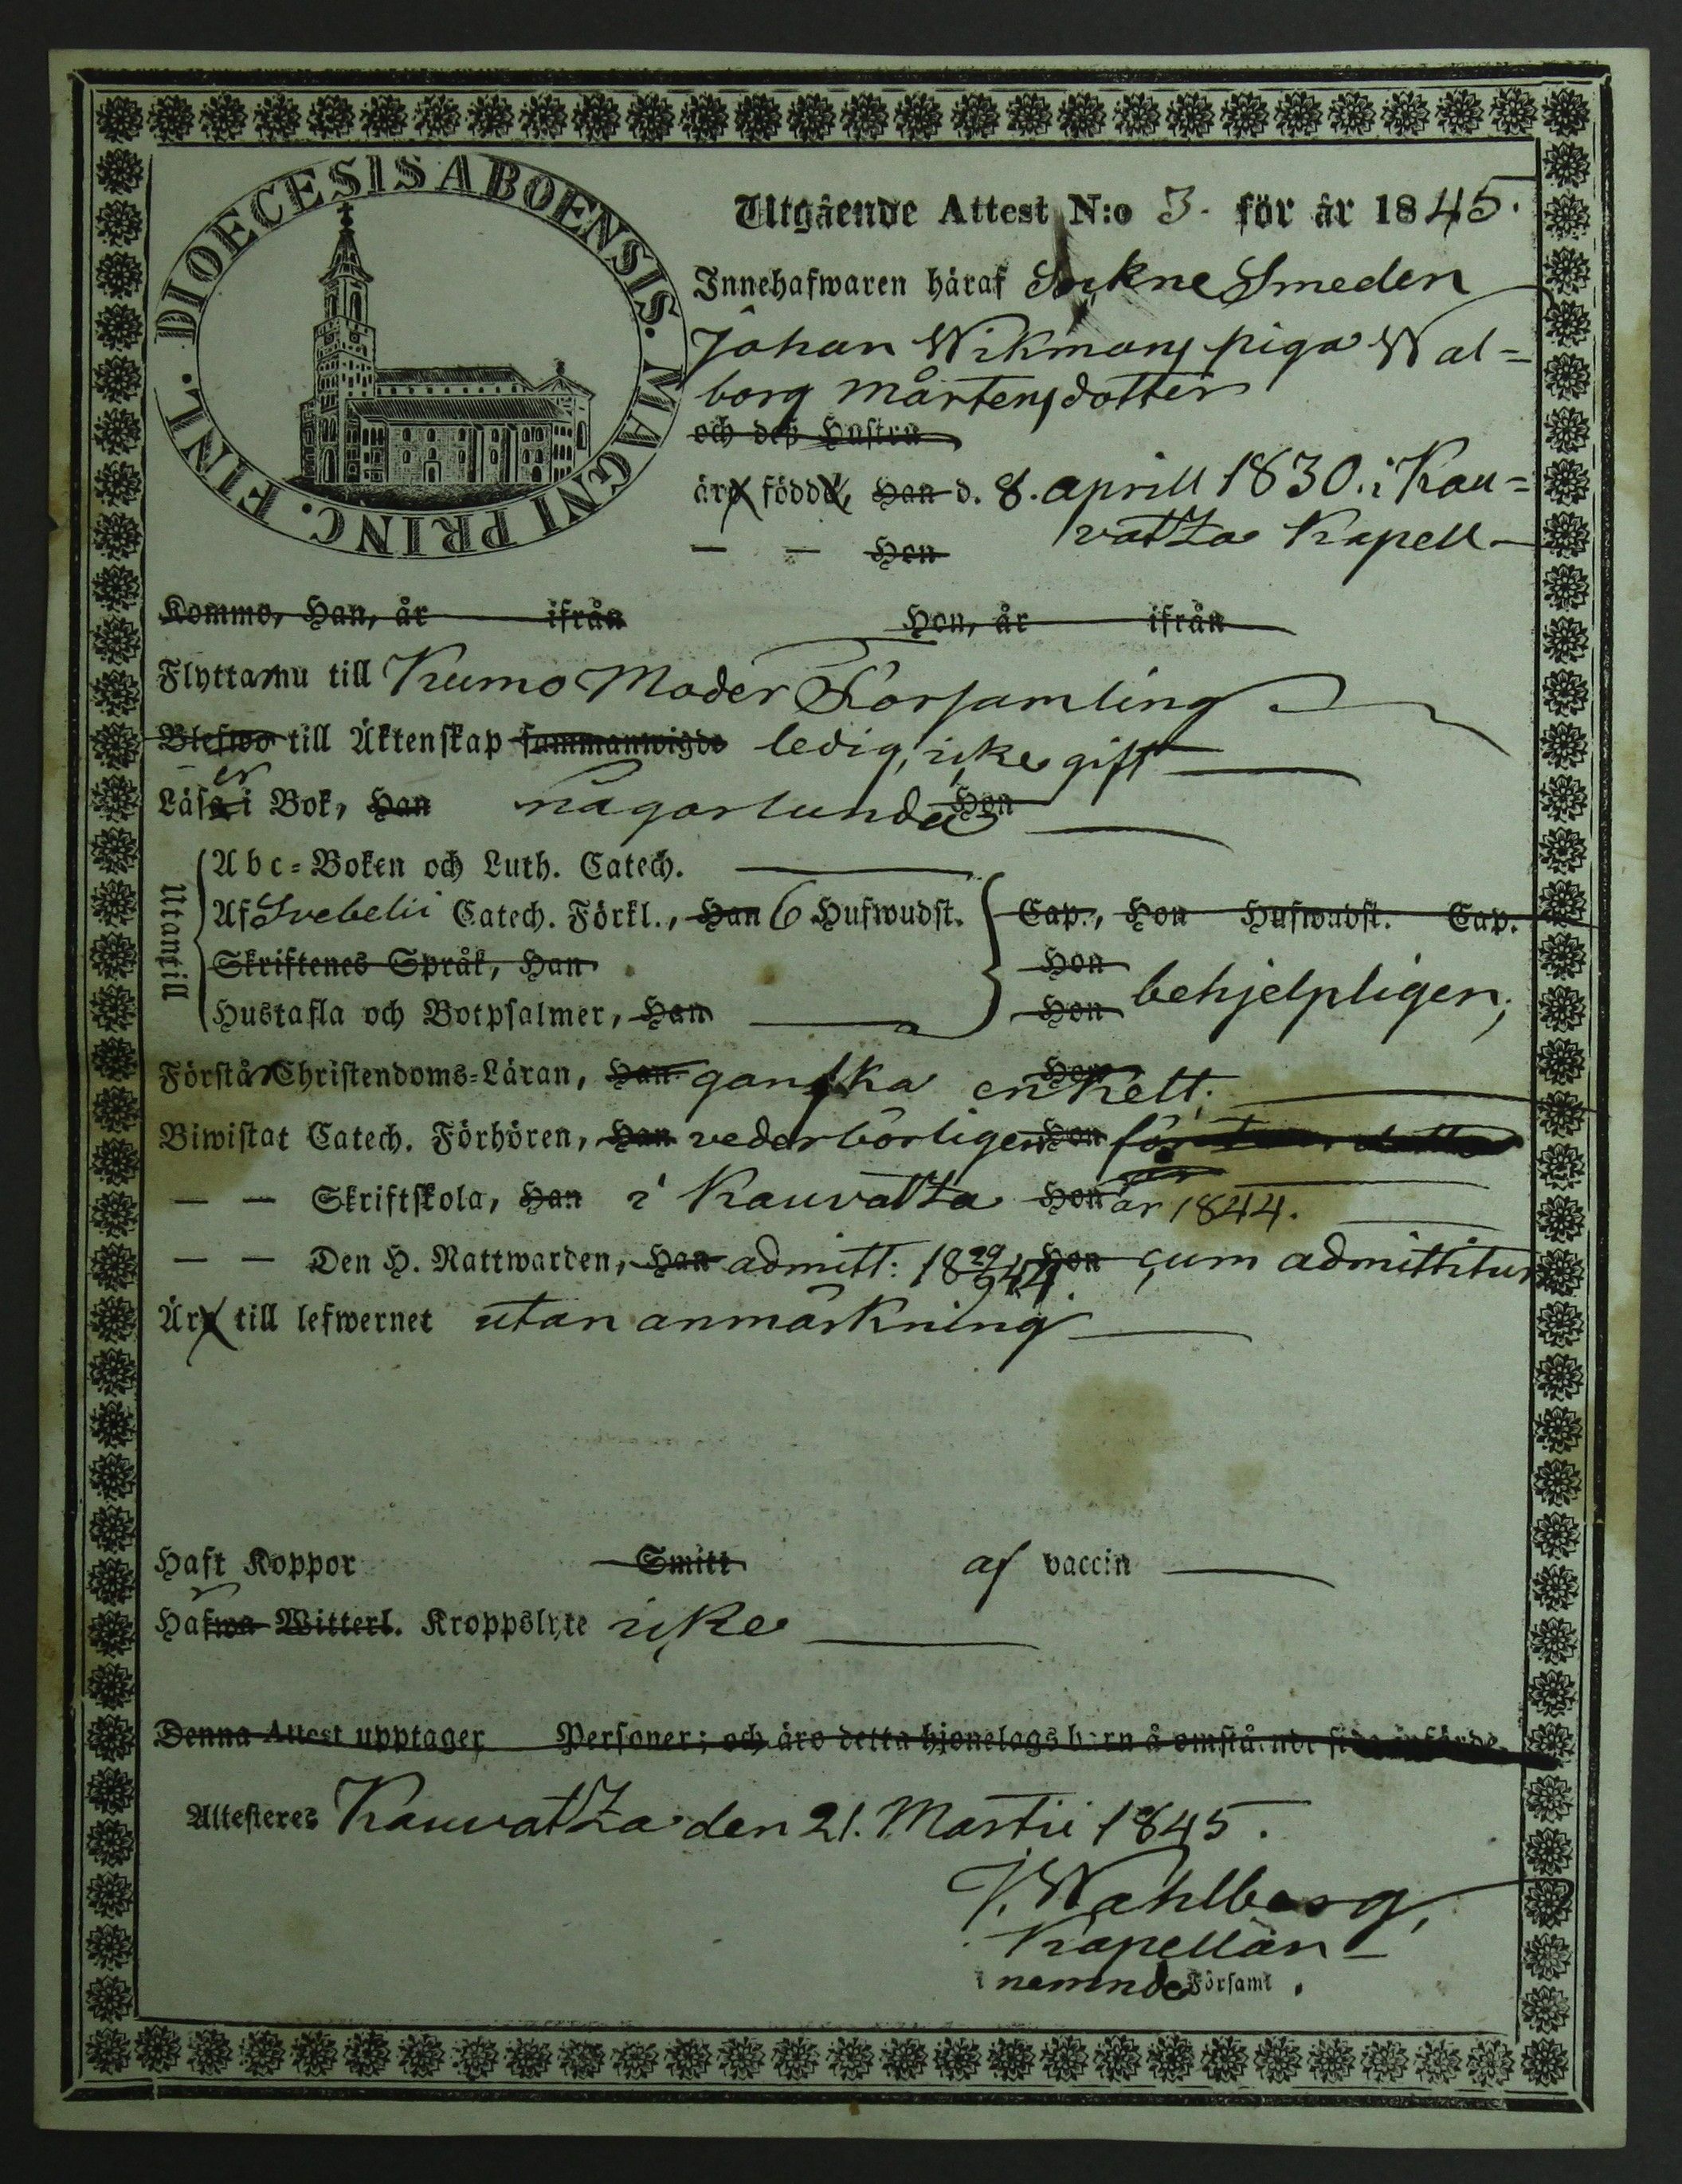 DIOECESIS ABOENSIS. MAGNI PRINC. FINL.
Utgående Attest N:o 3. för år 1845.
Innehafwaren häraf Sockne Smeden
Johan Wikmans piga Wal=
borg Mårtensdotter
och deß Hustru
äro födde, Han d. 8. aprill 1830. i Kau=
— — Hon vatza Kapell
Kommo, Han, år ifrån Hon, år ifrån
Flytta nu till Kumo Moder Församling
Blefwo till Äktenskap sammanwigde ledig, icke gift
Läsa er i Bok, Han någorlunda Hon
Utantill
Abc=Boken och Luth. Catech.
Af Svebelii Catech. Förkl., Han 6 Hufwudst. Cap., Hon Hufwudst. Cap.
Skriftenes Språk, Han Hon
behjelpligen;
Hustafla och Botpsalmer, Han Hon
Förstår Christendoms=Läran, Han ganska enkelt. Hon
Biwistat Catech. Förhören, Han vederbörligen Hon
— — Skriftskola, Han i Kauvatza Hon år 1844.
— — Den H. Nattwarden, Han admitt: 18 29/9 44. Hon cum admittitur
Äro till lefwernet utan anmärkning
Haft Koppor Smitt af vaccin
Hafwa r Witterl. Kroppslyte icke
Denna Attest upptager Personer; och äro detta hjonelags barn å omstående sida införde.
Attesteres Kauvatza den 21. Martii 1845.
J. Wahlberg,
Kapellan
i nemnde Församl.